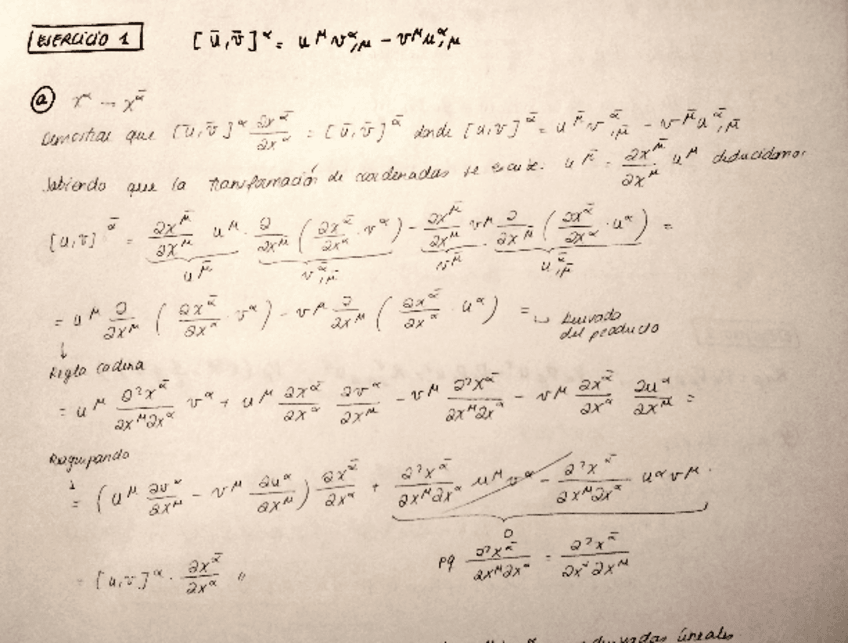 EJERCICIO 1 [ū, v̄]^α = u^μ v^α_{,μ} − v^μ u^α_{,μ}
ⓐ x^α → x^ᾱ
Demostrar que [ū, v̄]^α ∂x^ᾱ/∂x^α = [ū, v̄]^ᾱ donde [u, v]^ᾱ = u^μ̄ v^ᾱ_{,μ̄} − v^μ̄ u^ᾱ_{,μ̄}
Sabiendo que la transformación de coordenadas se escribe: u^μ̄ = ∂x^μ̄/∂x^μ u^μ deducidamos
[u, v]^ᾱ = ∂x^μ̄/∂x^μ u^μ · ∂/∂x^μ̄ (∂x^ᾱ/∂x^α · v^α) − ∂x^μ̄/∂x^μ v^μ ∂/∂x^μ̄ (∂x^ᾱ/∂x^α · u^α) =
u^μ̄ v^ᾱ_{,μ̄} v^μ̄ u^ᾱ_{,μ̄}
= u^μ ∂/∂x^μ (∂x^ᾱ/∂x^α · v^α) − v^μ ∂/∂x^μ (∂x^ᾱ/∂x^α · u^α) = ↳ Derivada
del producto
↓
Regla cadena
= u^μ ∂²x^ᾱ/∂x^μ∂x^α v^α + u^μ ∂x^ᾱ/∂x^α ∂v^α/∂x^μ − v^μ ∂²x^ᾱ/∂x^μ∂x^α − v^μ ∂x^ᾱ/∂x^α ∂u^α/∂x^μ =
Reagrupando
↓
= (u^μ ∂v^α/∂x^μ − v^μ ∂u^α/∂x^μ) ∂x^ᾱ/∂x^α + ∂²x^ᾱ/∂x^μ∂x^α u^μ v^α − ∂²x^ᾱ/∂x^μ∂x^α u^α v^μ.
0
= [u, v]^α · ∂x^ᾱ/∂x^α // pq ∂²x^ᾱ/∂x^μ∂x^α = ∂²x^ᾱ/∂x^α∂x^μ
derivadas lineales